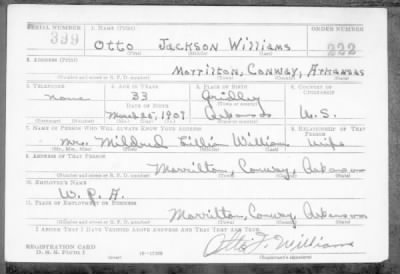 SERIAL NUMBER 1. NAME (Print) ORDER NUMBER
399 Otto Jackson Williams 222
(First) (Middle) (Last)
2. ADDRESS (Print)
Morrilton, Conway, Arkansas
(Number and street or R. F. D. number) (Town) (County) (State)
3. TELEPHONE 4. AGE IN YEARS 5. PLACE OF BIRTH 6. COUNTRY OF CITIZENSHIP
None 33 Gridley
DATE OF BIRTH
March 25, 1907 Arkansas U.S.
(Exchange) (Number) (Mo.) (Day) (Yr.) (State or country)
7. NAME OF PERSON WHO WILL ALWAYS KNOW YOUR ADDRESS 8. RELATIONSHIP OF THAT PERSON
Mrs. Mildred Lillian William Wife
(Mr., Mrs., Miss) (First) (Middle) (Last)
9. ADDRESS OF THAT PERSON
Morrilton, Conway,
(Number and street or R. F. D. number) (Town) (County) (State)
10. EMPLOYER'S NAME
W. P. A.
11. PLACE OF EMPLOYMENT OR BUSINESS
Morrilton, Conway, Arkansas
(Number and street or R. F. D. number) (Town) (County) (State)
I AFFIRM THAT I HAVE VERIFIED ABOVE ANSWERS AND THAT THEY ARE TRUE.
REGISTRATION CARD
D. S. S. Form 1 Otto J. Williams
(Registrant's signature)